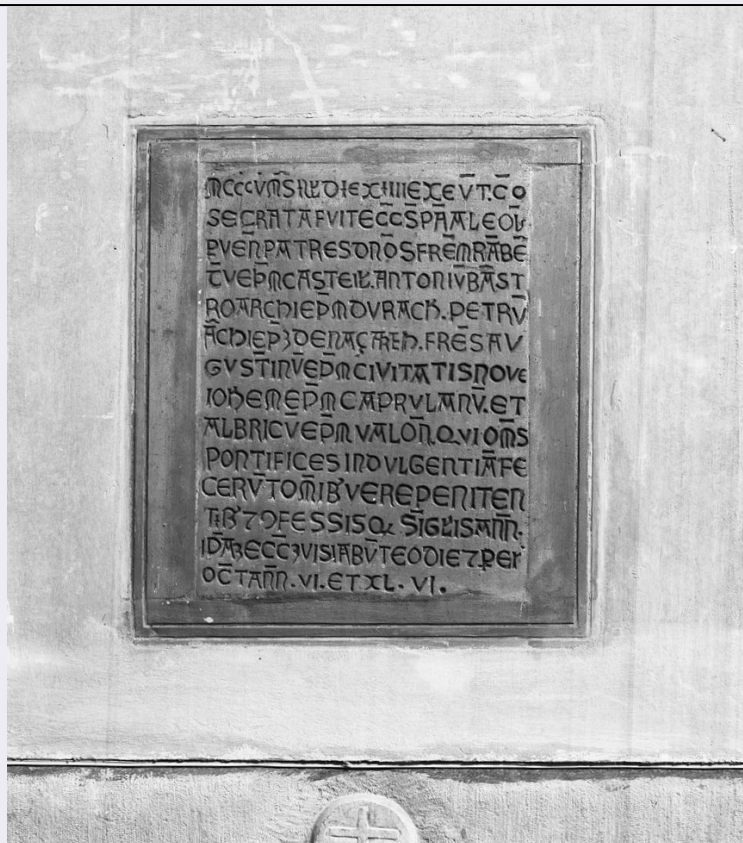 M̄CCCV M̄SIULII DIE XIIII EXEŪT. C̄O
SECRATA FUIT ECC̄ S PĀ A ALEOL
PVEN̄ PATRES DN̄OS FREM̄ RĀBE
T̄ VEP̄M CASTELŁ. ANTONIV BĀST
RO ARCHIEP̄M DVRACH̄. PETRV̄
ĀCHIEP̄Ʒ DE NAÇAREH̄. FRES̄ AV
GVSTINV̄ EP̄M CIVITATIS NOVE
IOHEM̄ EP̄M CAPRVLANV̄. ET
ALBRICV̄ EP̄M VALON̄. QVI OM̄S
PONTIFICES INDVLGENTIĀ FE
CERV̄T OM̄IB' VERE PENITEN
TIB' ⁊ ꝯFESSIS Q SIḠLIS ANN̄.
IDĀƷ ECC̄Ʒ VISITABV̄T EO DIE ⁊ PER
OC̄T ANN̄. VI. ET XL. VI.